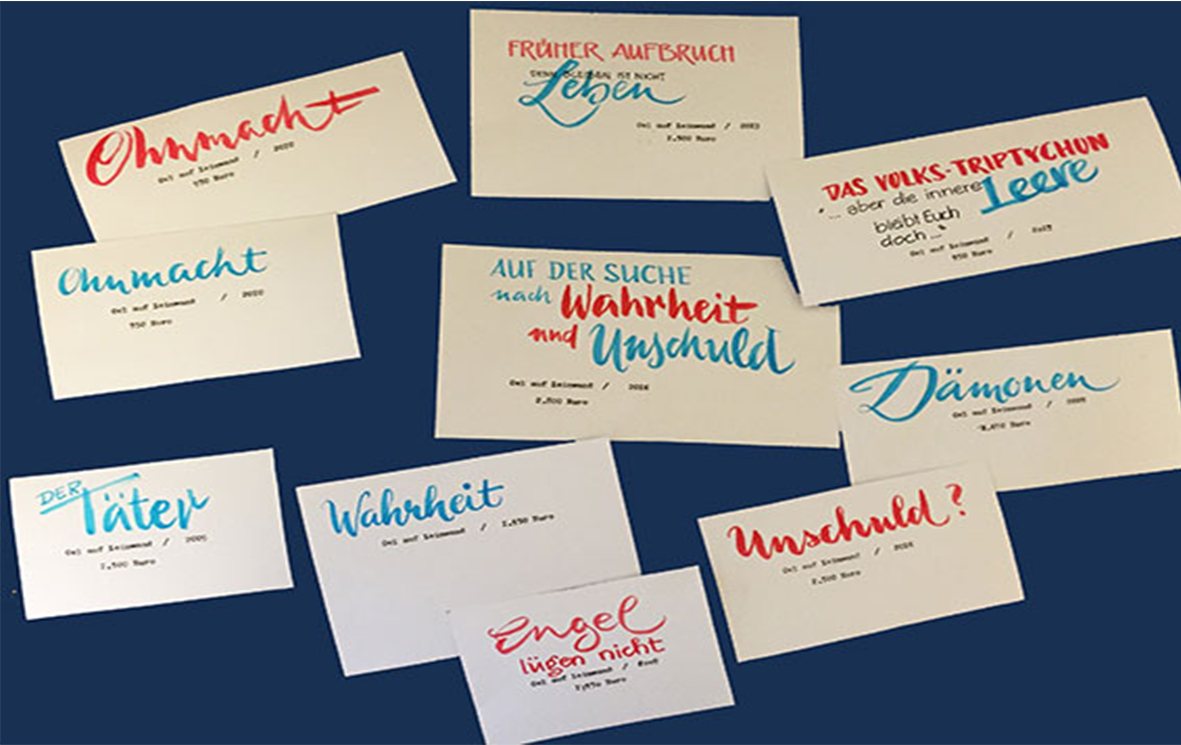 FRÜHER AUFBRUCH
DENN BLEIBEN IST NICHT
Leben
Oel auf Leinwand / 2023
2.500 Euro
Ohnmacht
Oel auf Leinwand / 2020
950 Euro
DAS VOLKS-TRIPTYCHON
"... aber die innere Leere
bleibt Euch
doch ..."
Oel auf Leinwand /
950 Euro
Ohnmacht
Oel auf Leinwand / 2020
950 Euro
AUF DER SUCHE
nach Wahrheit
und Unschuld
Oel auf Leinwand / 2026
2.500 Euro
Dämonen
Oel auf Leinwand /
Euro
DER Täter
Oel auf Leinwand /
2.500 Euro
Wahrheit
Oel auf Leinwand / Euro
Unschuld?
Oel auf Leinwand /
2.500 Euro
Engel
lügen nicht
Oel auf Leinwand /
Euro